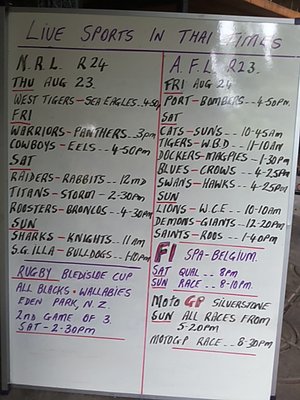 LIVE SPORTS IN THAI TIMES
N.R.L R24
THU AUG 23.
WEST TIGERS - SEA EAGLES - 4.50pm
FRI
WARRIORS - PANTHERS.. 3pm
COWBOYS - EELS.. 4-50pm
SAT
RAIDERS - RABBITS.. 12md
TITANS - STORM - 2-30pm
ROOSTERS - BRONCOS - 4-30pm
SUN
SHARKS - KNIGHTS.. 11am
S.G.ILLA - BULLDOGS.. 1-10pm
RUGBY BLEDISLOE CUP
ALL BLACKS - WALLABIES
EDEN PARK, N.Z.
2ND GAME OF 3.
SAT - 2-30pm
A.F.L. R23.
FRI AUG 24
PORT - BOMBERS - 4-50pm.
SAT
CATS - SUNS.. 10-45am
TIGERS - W.B.D - 11-10am
DOCKERS - MAGPIES - 1-30pm
BLUES - CROWS.. 4-25pm
SWANS - HAWKS.. 4-25pm
SUN
LIONS - W.C.E.. 10-10am
DEMONS - GIANTS.. 12-20pm
SAINTS - ROOS.. 1-40pm
F1 SPA-BELGIUM.
SAT QUAL.. 8pm
SUN RACE.. 8-10pm.
MOTO GP SILVERSTONE
SUN ALL RACES FROM
5-20pm
MOTOGP RACE.. 8-30pm